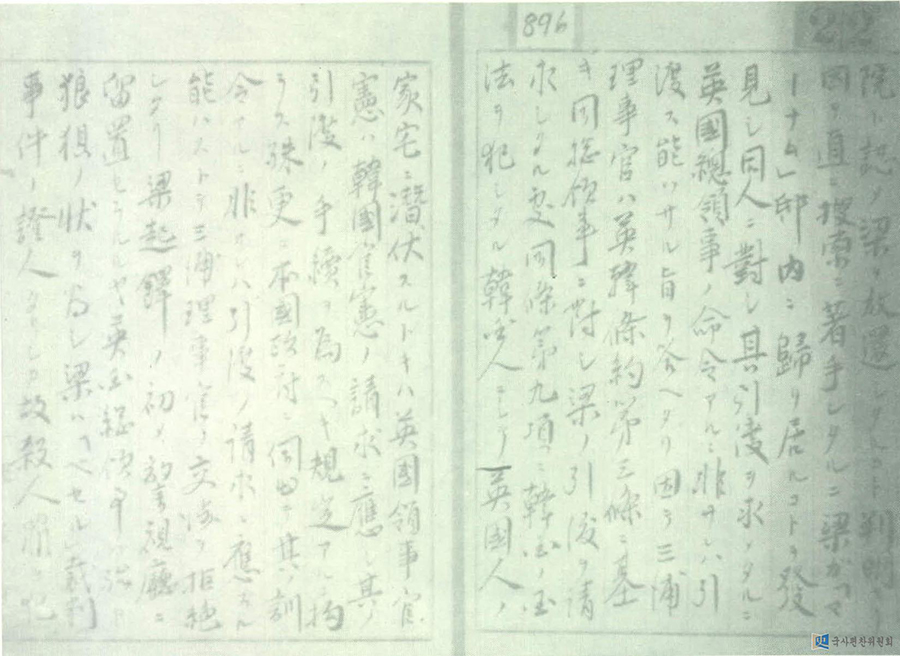 896
院ト誤ノ梁ヲ放還シタルコト判明セリ
因テ直ニ捜索ニ著手シタルニ梁ガ「マ
ーナム」邸内ニ歸リ居ルコトヲ發
見シ同人ニ對シ其引渡ヲ求メタルニ
英國總領事ノ命令アルニ非サレハ引
渡ス能ハサル旨ヲ答ヘタリ因テ三浦
理事官ハ英韓條約第三條ニ基
キ同總領事ニ對シ梁ノ引渡ヲ請
求シタル處同條第九項ニ韓國ノ國
法ヲ犯シタル韓國人ニシテ英國人ノ
家宅ニ潜伏スルトキハ英國領事官
憲ハ韓國官憲ノ請求ニ應シ其ノ
引渡ノ手續ヲ為スヘキ規定アルニ拘
ラス殊更ニ本國政府ニ伺出テ其ノ訓
令アルニ非サレハ引渡ノ請求ニ應スル
能ハストテ三浦理事官ノ交渉ヲ拒絶
シタリ 梁起鐸ノ初メ警視廳ニ
留置セラルルヤ英國總領事ハ
狼狽ノ状ヲ為シ梁ハベセル裁判
事件ノ證人タリシ故殺人
국사편찬위원회